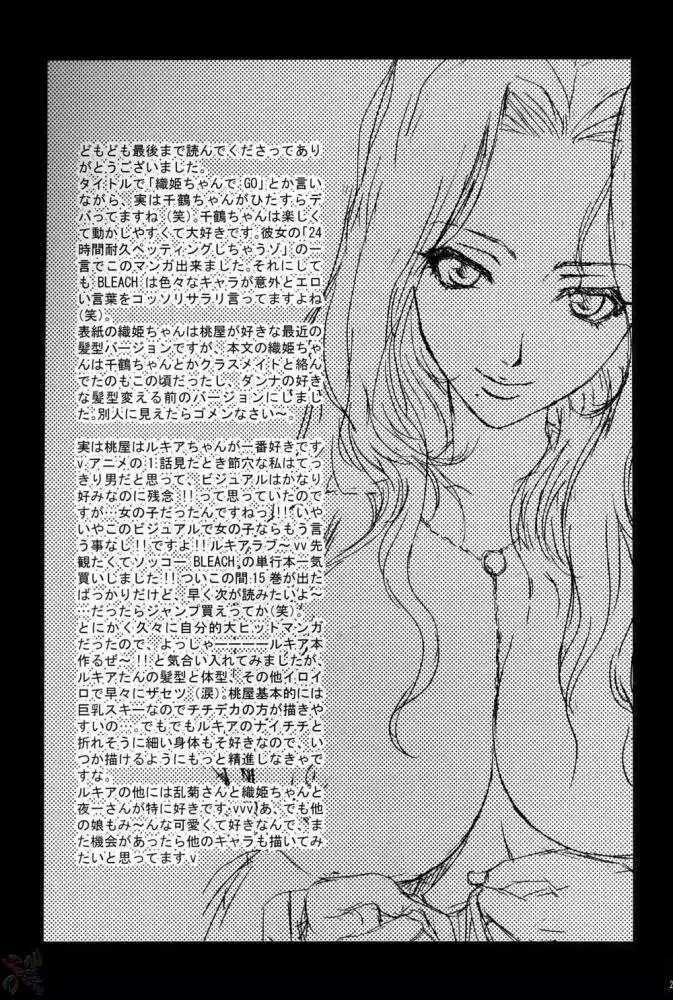 どもども最後まで読んでくださってあり
がとうございました。
タイトルで「織姫ちゃんで GO」とか言い
ながら、実は千鶴ちゃんがひたすらデ
バってますね(笑)。千鶴ちゃんは楽しく
て動かしやすくて大好きです。彼女の「24
時間耐久ペッティングしちゃうゾ」の一
言でこのマンガ出来ました。それにして
も BLEACH は色々なキャラが意外とエロ
い言葉をコッソリサラリ言ってますよね
(笑)。
表紙の織姫ちゃんは桃屋が好きな最近の
髪型バージョンですが、本文の織姫ちゃ
んは千鶴ちゃんとかクラスメイトと絡ん
でたのもこの頃だったし、ダンナの好き
な髪型変える前のバージョンにしまし
た。別人に見えたらゴメンなさい～。
実は桃屋はルキアちゃんが一番好きです
v アニメの1話見たとき節穴な私はてっ
きり男だと思って、ビジュアルはかなり
好みなのに残念!!って思っていたので
すが…女の子だったんですねっ!!!いや
いやこのビジュアルで女の子ならもう言
う事なし!!ですよ!!ルキアラブ～vv先
観たくてソッコー BLEACH の単行本一気
買いしました!!ついこの間15巻が出た
ばっかりだけど、早く次が読みたいよ～
…だったらジャンプ買えってか(笑)。
とにかく久々に自分的大ヒットマンガ
だったので、よっしゃ――――ルキア本
作るぜ～!!と気合い入れてみましたが、
ルキアたんの髪型と体型、その他イロイ
ロで早々にザセツ(涙)。桃屋基本的には
巨乳スキーなのでチチデカの方が描きや
すいの…。でもでもルキアのナイチチと
折れそうに細い身体もそ好きなので、い
つか描けるようにもっと精進しなきゃで
すな。
ルキアの他には乱菊さんと織姫ちゃんと
夜一さんが特に好きです vvv あ、でも他
の娘もみ～んな可愛くて好きなんで、ま
た機会があったら他のキャラも描いてみ
たいと思ってます v
2